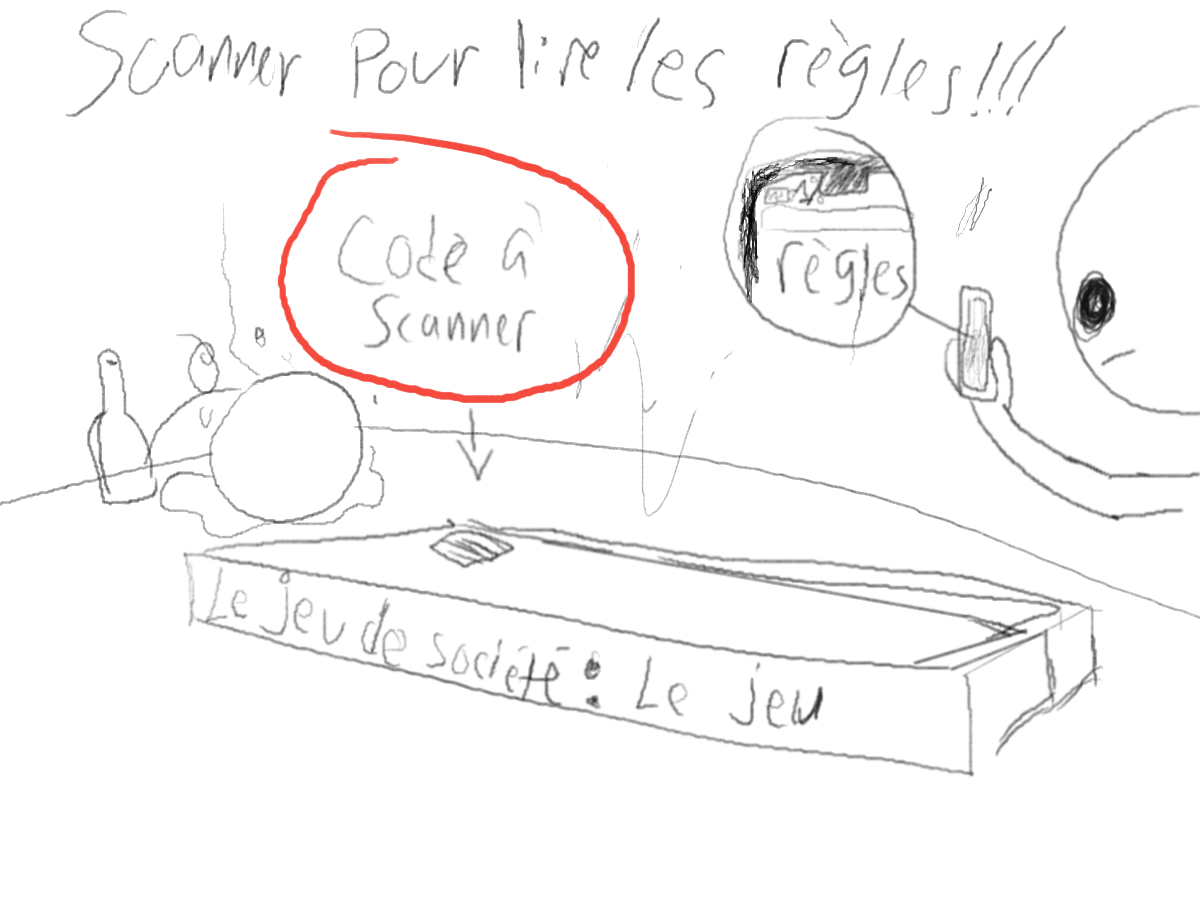 Scanner Pour lire les règles!!!
Code à
Scanner
règles
Le jeu de société : Le jeu